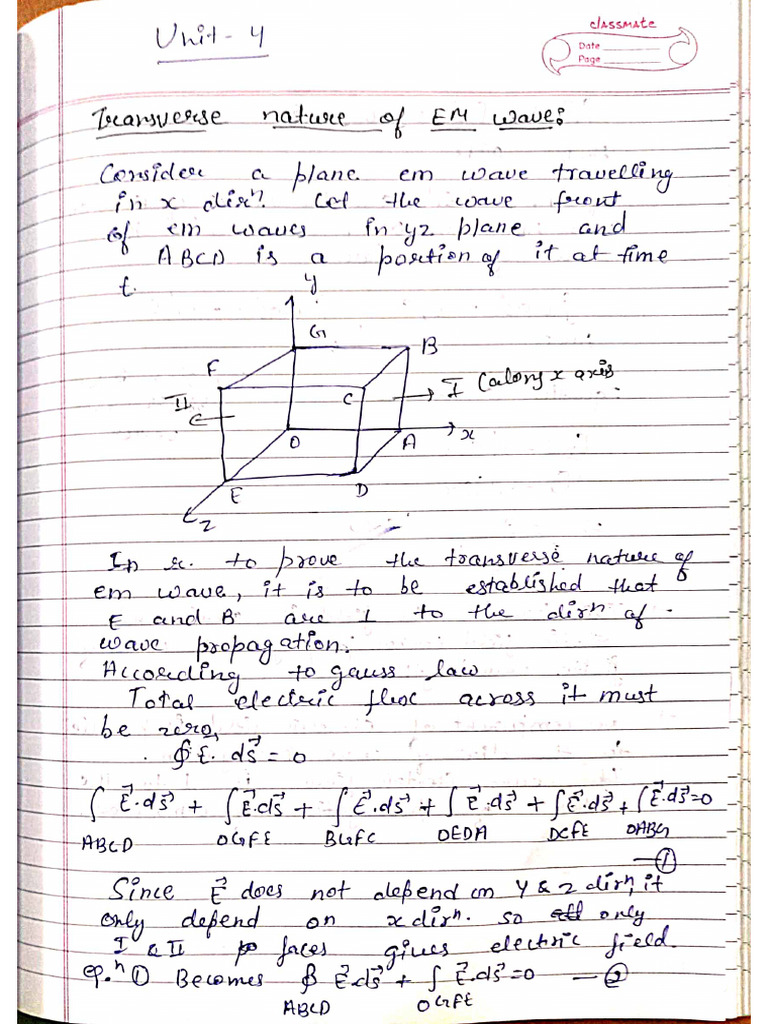 Unit-4
classmate
Date
Page
Transverse nature of EM wave:
Consider a plane em wave travelling
in x dirⁿ. Let the wave front
of em waves in yz plane and
ABCD is a portion of it at time
t.
y
G
B
F
C
I (along x axis
II
O
A
x
E
D
z
In to prove the transverse nature of
em wave, it is to be established that
E and B are ⊥ to the dirⁿ of
wave propagation.
According to gauss law
Total electric flux across it must
be zero,
∮E. ds⃗ = 0
∫ E⃗.ds⃗ + ∫E⃗.ds⃗ + ∫ E⃗.ds⃗ + ∫E⃗.ds⃗ + ∫E⃗.ds⃗ + ∫E⃗.ds⃗=0
ABCD OGFE BGFC OEDA DCFE OABG
— ①
Since E⃗ does not depend on Y & z dirⁿ, it
only depend on x dirⁿ. so only
I & II faces gives electric field.
eq.ⁿ ① Becomes ∮ E⃗.ds⃗ + ∫ E⃗.ds⃗=0 — ②
ABCD OGFE